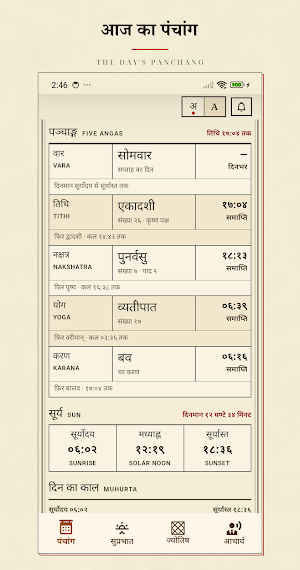 आज का पंचांग
THE DAY'S PANCHANG
2:46
अ A
पञ्चाङ्ग FIVE ANGAS तिथि १७:०४ तक
वार सोमवार –
VARA सप्ताह का दिन दिनभर
दिनमान सूर्योदय से सूर्यास्त तक
तिथि एकादशी १७:०४
TITHI संख्या २६ · कृष्ण पक्ष समाप्ति
फिर द्वादशी · कल १४:४३ तक
नक्षत्र पुनर्वसु १८:१३
NAKSHATRA संख्या ७ · पाद २ समाप्ति
फिर पुष्य · कल १६:३८ तक
योग व्यतीपात ०६:३९
YOGA संख्या १७ समाप्ति
फिर वरीयान् · कल ०३:३६ तक
करण बव ०६:१६
KARANA चर करण समाप्ति
फिर बालव · १७:०४ तक
सूर्य SUN दिनमान १२ घण्टे ३४ मिनट
सूर्योदय मध्याह्न सूर्यास्त
०६:०२ १२:१९ १८:३६
SUNRISE SOLAR NOON SUNSET
दिन का काल MUHURTA
सूर्योदय ०६:०२ सूर्यास्त १८:३६
पंचांग सुप्रभात ज्योतिष आचार्य